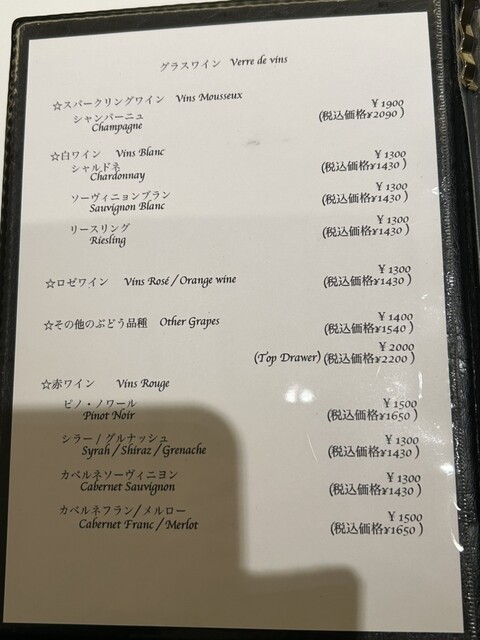 グラスワイン Verre de vins
☆スパークリングワイン Vins Mousseux ￥1900
シャンパーニュ (税込価格¥2090 )
Champagne
☆白ワイン Vins Blanc ￥1300
シャルドネ (税込価格¥1430 )
Chardonnay
ソーヴィニョンブラン ￥1300
Sauvignon Blanc (税込価格¥1430 )
リースリング ￥1300
Riesling (税込価格¥1430 )
☆ロゼワイン Vins Rosé / Orange wine ￥1300
(税込価格¥1430 )
☆その他のぶどう品種 Other Grapes ￥1400
(税込価格¥1540 )
￥2000
(Top Drawer) (税込価格¥2200 )
☆赤ワイン Vins Rouge
ピノ・ノワール ￥1500
Pinot Noir (税込価格¥1650 )
シラー / グルナッシュ ￥1300
Syrah / Shiraz / Grenache (税込価格¥1430 )
カベルネソーヴィニヨン ￥1300
Cabernet Sauvignon (税込価格¥1430 )
カベルネフラン/ メルロー ￥1500
Cabernet Franc / Merlot (税込価格¥1650 )